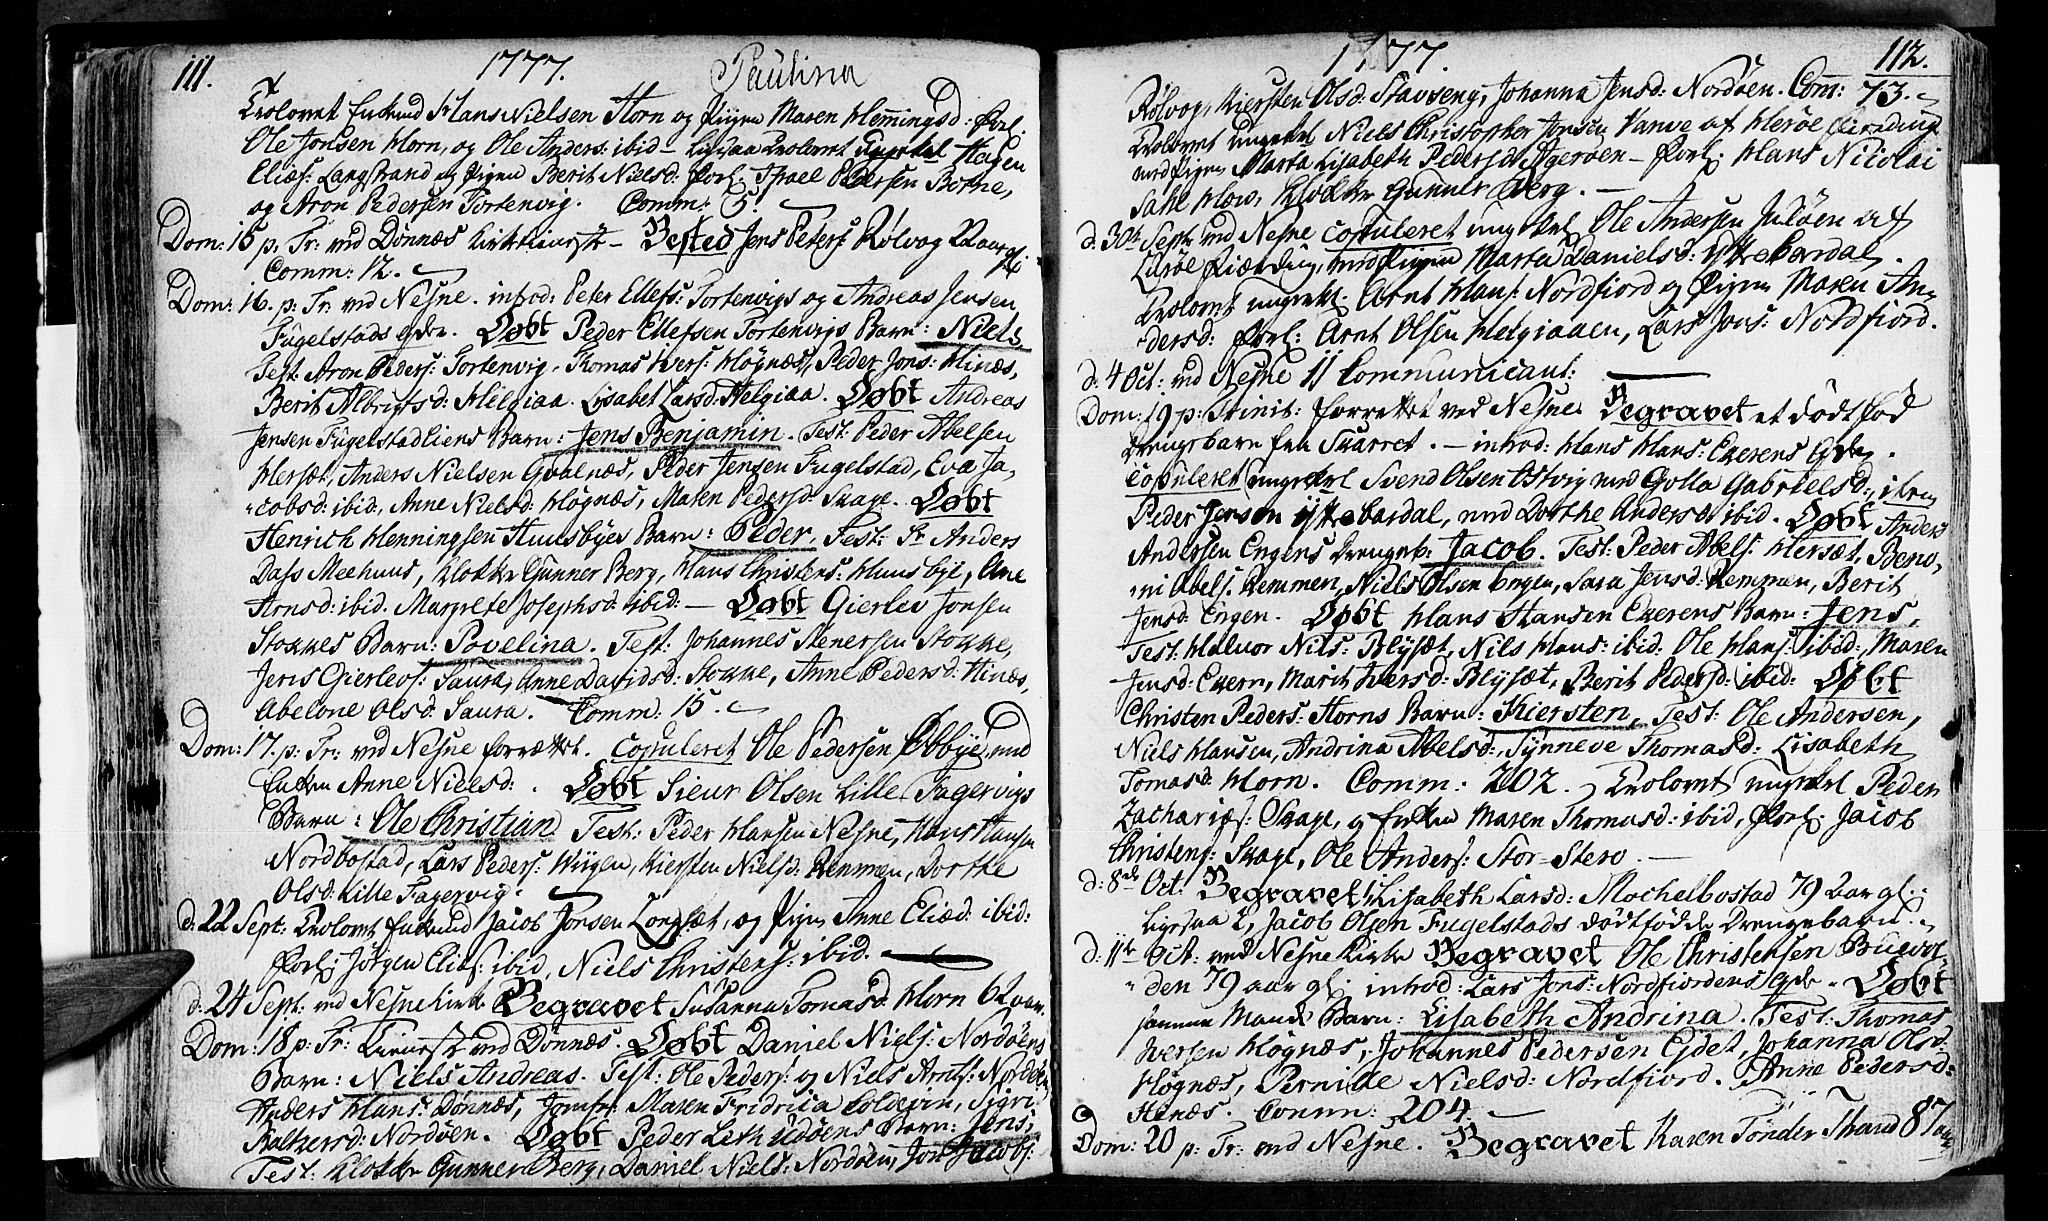 111.
1777.
Paulina
Trolovet Enkemd Hans Nielsen Horn og Pigen Maren Hemingsd: Forl:
Ole Jonsen Horn, og Ole Anders: ibid – Ligesaa Trolovet Hagen
Eliæs: Langstrand og Pigen Berit Nielsd: Forl: Israel Pedersen Botne,
og Aron Pedersen Tortenvig. Comm: 5.
Dom: 15 p: Tr: ved Dönnæs Bested Jens Peders: Rølvog 22 aar gl.
Comm: 12.
Dom: 16. p: Tr: ved Nesne. introd: Peter Ellefs: Tortenvigs og Andreas Jensen
Fugelstads qvdr. Døbt Peder Ellefsen Tortenvigs Barn: Niels
Test: Aron Peders: Tortenvig, Thomas Ivers: Høgnæs, Peder Jons: Hinæs,
Berit Albrigtsd: Helgiaa. Lisabet Larsd: Helgiaa. Døbt Andreas
Jensen Fugelstadliens Barn: Jens Benjamin. Test: Peder Abelsen
Hersæt, Anders Nielsen Qvalnæs, Peder Jensen Fugelstad, Eva Ja-
cobsd: ibid:, Anne Nielsd: Høgnæs, Maren Pedersd: Skage. Døbt
Henrich Henningsen Huusbyes Barn: Peder. Test: Sr Anders
Dass Meehuus, Klokker Gunner Berg, Hans Christens: Huusbye, Ane
Arnsd: ibid. Margrete Josephsd: ibid: – Døbt Gierlev Jonsen
Stokkes Barn: Povelina. Test: Johannes Stenersen Stokke,
Jens Gierlevs: Saura, Anne Davidsd: Stokke, Anne Pedersd: Hinæs,
Abelone Olsd: Saura. Comm: 15.
Dom: 17. p: Tr: ved Nesne forrettet. Copuleret Ole Pedersen Ebbye, med
Enken Anne Nielsd: . Døbt Sieur Olsen Lille Fagervigs
Barn: Ole Christian. Test: Peder Hansen Nesne, Hans Hansen
Nordbostad, Lars Peders: Wiigen, Kiersten Nielsd: Remmen, Dorthe
Olsd: Lille Fagervig.
d: 22 Sept: Trolovet Enkemd Jacob Jonsen Longsæt, og Pigen Anne Eliæd: ibid:
Forl: Jörgen Eliæs: ibid, Niels Christens: ibid.
d: 24 Sept: ved Nesne Kirke Begravet Susanna Tomasd: Horn 62 aar.
Dom: 18 p: Tr: ved Dönnæs. Døbt Daniel Niels: Nordöens
Barn: Niels Andreas. Test: Ole Peders: og Niels Arnts: Nordöen
Anders Hans: Dönnæs, Jomfr: Maren Fridrica Coldevin, Sigri
Baltzersd: Nordöen. Døbt Peder Barn: Jens,
Test: Klokker Gunner Berg, Daniel Niels: Nordöen, Jon Jacobs:
1777.
112.
Rölvog, Kiersten Olsd: Stavseng, Johanna Jensd: Nordöen. Com: 73.
Trolovet ungekrl Niels Christopher Jonsen af Herøe fierding
med Pigen Marta Lisabeth Pedersd: Ageröen – Forl: Hans Nicolai
Sahl How, Klokker Gunner Berg.
d. 30te Sept: ved Nesne copuleret ungekrl Ole Andersen Juløen af
fierding, med Pigen Marta Danielsd: Yttrebardal.
Trolovet ungekrl. Arnt Hans: Nordfiord og Pigen Maren An-
dersd: Forl: Arnt Olsen Helgiaaen, Lars Jons: Nordfiord.
d. 4 Oct: ved Nesne 11 Communicant:
Dom: 19 p: Trinit: forrettet ved Nesne. Begravet et dödtfød
Drengebarn fra Skarret. – introd: Hans Hans: Exerens qvdr.
Copuleret ungekrl Svend Olsen Ostvig med Golla Gabrielsd:, item
Peder Jensen yttrebardal, med Dorthe Andersd: ibid. Døbt Anders
Andersen Engens Drengeb: Jacob. Test: Peder Abels: Hersæt, Beno-
ni Abels: Remmen, Niels Olsen Engen, Sara Jensd: Remmen, Berit
Jensd: Engen. Døbt Hans Hansen Exerens Barn: Jens,
Test: Haluor Nils: Blysæt, Nils Hans: ibid: Ole Hans: ibid:, Maren
Jensd: Exern, Marit Iversd: Blysæt, Berit Pedersd: ibid: Døbt
Christen Peders: Horns Barn: Kiersten, Test: Ole Andersen,
Niels Hansen, Andrina Abelsd:, Synneve Thomasd: Lisabeth
Tomasd: Horn. Comm: 202. Trolovet ungekrl Peder
Zachariæs: Skage, og Enken Maren Thomasd: ibid, Forl: Jacob
Christens: Skage, Ole Anders: Stor-Stero.
d: 8de Oct: Begravet Lisabeth Larsd: Mochelbostad 79 Aar gl:
ligesaa Jacob Olsen Fugelstads dödtfödde Drengebarn.
d: 11te Oct: ved Nesne Kirke Begravet Ole Christensen
den 79 aar gl: introd: Lars Jons: Nordfiordens qvdr. Døbt
samme Mands Barn: Lisabeth Andrina. Test: Thomas
Iversen Høgnæs, Johannes Pedersen Eidet, Johanna Olsd:
Høgnæs, Pernille Nielsd: Nordfiord. Anne Pedersd:
Hinæs. Comm: 204.
Dom: 20 p: Tr: ved Nesne. Begravet Karen Tönder Strand 87 aar